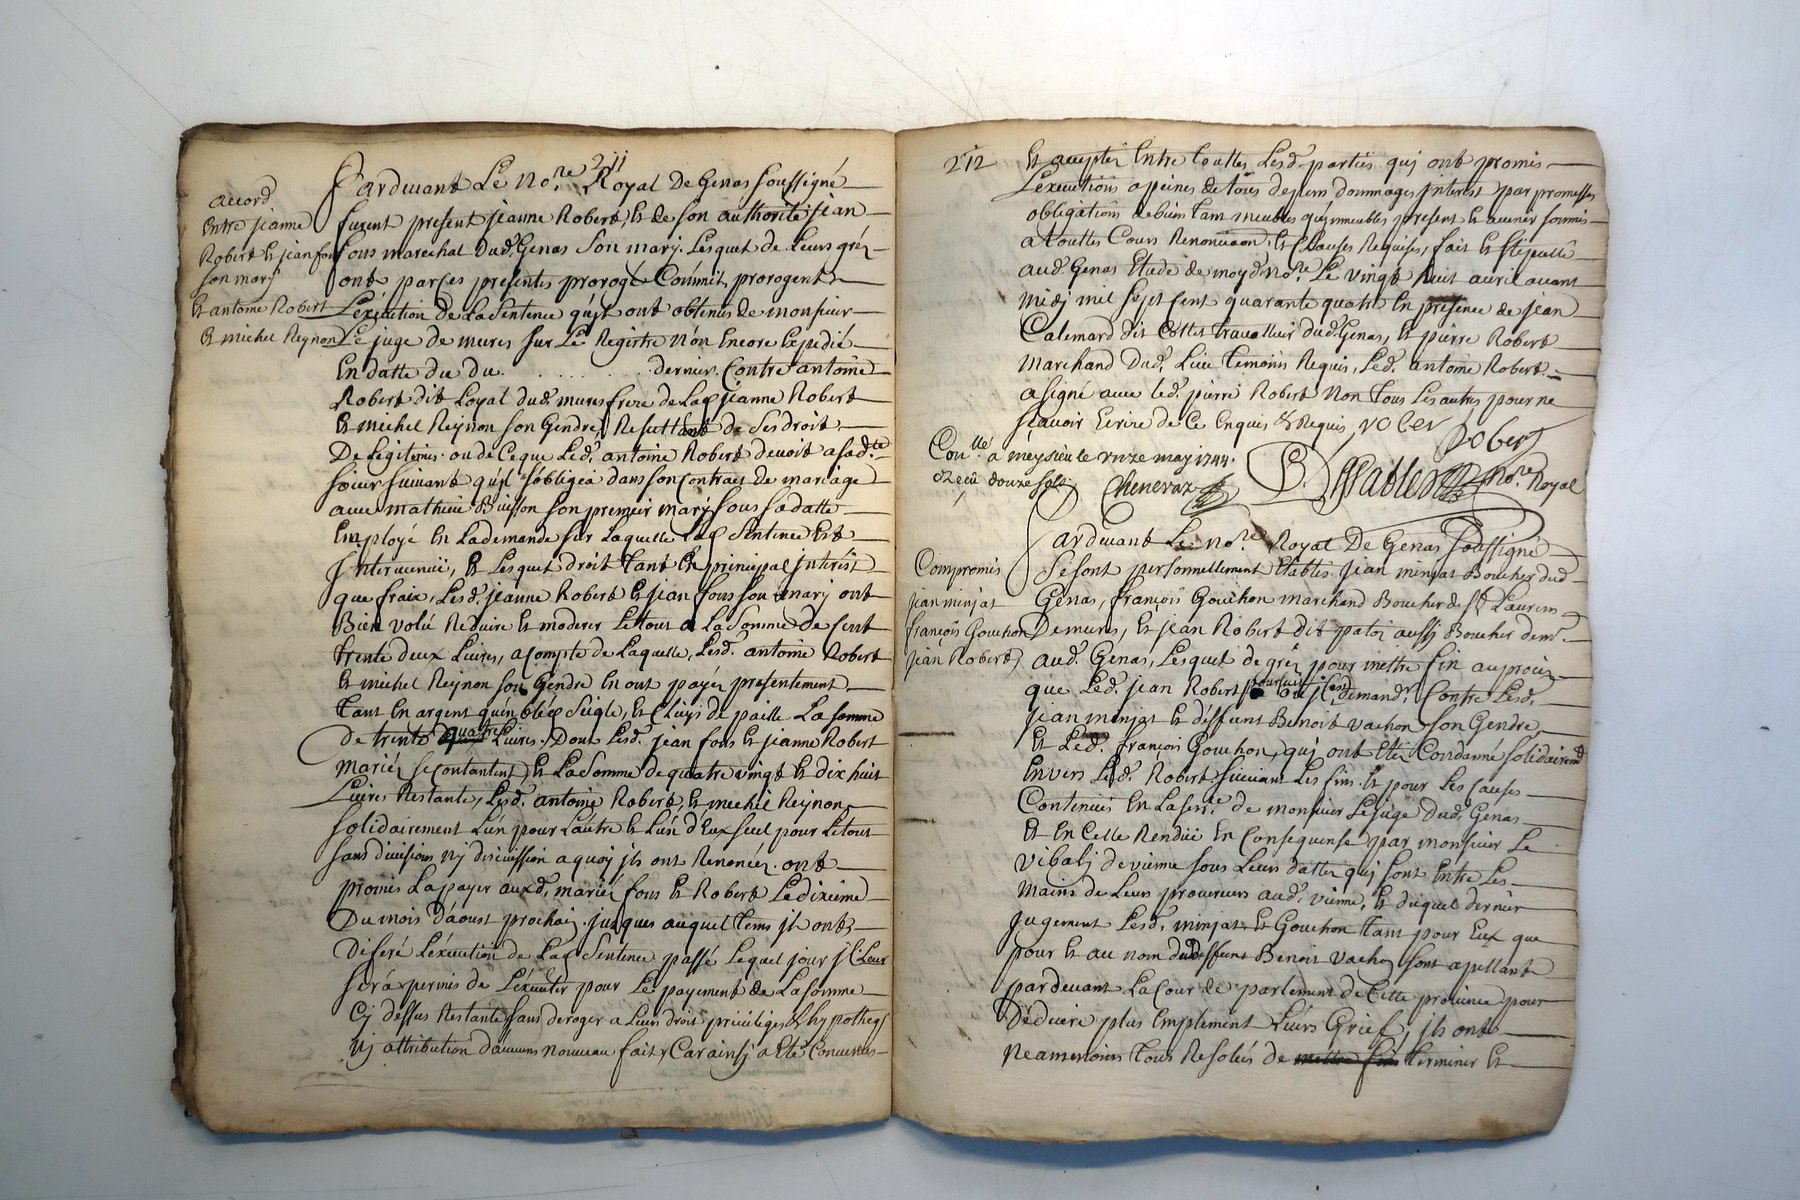 211
accord
Entre jeanne
Robert et jean fons
son mary
Et antoine Robert
Et michel Reynon
Pardevant Le No.re Royal De Genas soussigné
furent present jeanne Robert, et de son authorité jean
fons marechal dud. Genas son mary. Lesquet de Leurs gréz
ont par ces presentes prorogé Comme jls prorogent
L'exécution de La sentence qu'jls ont obtenue de monsieur
Le juge de mures sur Le Registre Nón Encore Expedié
En datte du du . . . . . . . . . dernier. Contre antoine
Robert dit Loyal dud. mures frere de Lad. jeanne Robert
Et michel Reynon son Gendre, Resultant de ses droit
De Legitimes. ou de Ce que Led. antoine Robert devoit a sad.te
soeur suivant qu'jl s'obligea dans son Contract de mariage
avec mathieu Buisson son premier mary sous sa datte
Employé En La demande sur Laquelle Lad. sentence Est
Jntervenüe, Et Lesquet droit tant En principal jnterést
que fraix, Lesd. jeanne Robert Et jean fons son mary ont
Bien volu Reduire Et moderer Le tout a La somme de Cent
trente deux Livres, a Compte de Laquelle, Lesd. antoine Robert
Et michel Reynon son Gendre En ont payéz presentement
tant En argent qu'en bléd seigle, Et Cluys de paille La somme
de trente quatre Livres. Dont Lesd. jean fons Et jeanne Robert
mariéz se Contantent, Et La somme de quatre vingt Et dix huit
Livres Restante, Lesd. antoine Robert, Et michel Reynon
solidairement L'un pour L'autre Et L'un d'Eux seul pour Le tout
sans division nj discussion a quoy jls ont Renoncéz. ont
promis La payer auxd. mariéz fons Et Robert Le dixieme
Du mois d'áoust prochain. jusques auquel tems jls ont
Diferé L'éxecution de Lad. sentence passé Lequel jour jl Leur
serâ permis de L'éxecuter pour Le payement de La somme
Cy dessus Restante sans deroger a Leurs droit privileges & hypotheq.
Nj attribution d'aucuns nouveau fait, Car ainsj a Eté Convenus
212
Et accepté Entre touttes Lesd. parties quj ont promis
L'execution a peines de tous depens dommages jnterest par promesses
obligations de biens tant meubles qu'jmmeubles present Et avenir soumis
a touttes Cours Renonciaõn, Et Clauses Requises, fait Et stipullé
aud. Genas Etude de moyd. No.re Le vingt huit avril avant
midj mil sept Cent quarante quatre En presence de jean
Calemard dit Collet travailleur dud. Genas, Et pierre Robert
marchand dud. Lieu temoins Requis, Led. antoine Robert
a signé avec led. pierre Robert Non tous Les autres pour ne
sçavoir Ecrire de Ce Enquis & Requis, rober
Robert
Con.llé a meysieu le onze may 1744.
Reçû douze sols
Cheneraz
No.re Royal
Compromis
jean minjat
françois Gouchon
jean Robert
Pardevant Le No.re Royal De Genas soussigné
se sont personnellement Etablis jean minjat Boucher dud.
Genas, françois Gouchon marchand Boucher de s.t Laurens
De mures, Et jean Robert dit patoz aussj Boucher dem.t
aud. Genas, Lesquet de gréz pour mettre fin au procéz
que Led. jean Robert poursuivoit jcy demand.r Contre Lesd.
jean minjat Et déffunt Benoit vachon son Gendre
Et Led. françois Gouchon, quj ont Eté Condamné solidairem.t
Envers Led. Robert suivant Les fins Et pour Les Causes
Contenües En La sent.ce de monsieur Le juge dud. Genas
Et En Celle Rendüe En Consequense par monsieur Le
vibalj de vienne sous Leurs dattes quj sont Entre Les
mains de Leurs procureurs aud. vienne, Et duquel dernier
jugement Lesd. minjat Et Gouchon tant pour Eux que
pour Et au nom dud. deffunt Benoit vachon sont apellant
pardevant La Cour de parlement de Cette province pour
Déduire plus Emplement Leurs Grief, jls ont
Neamenoins tous Resolus de mettre fin terminer Et